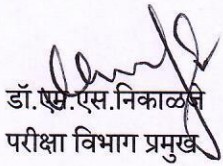 डॉ.एम.एस.निकाळजे
परीक्षा विभाग प्रमुख